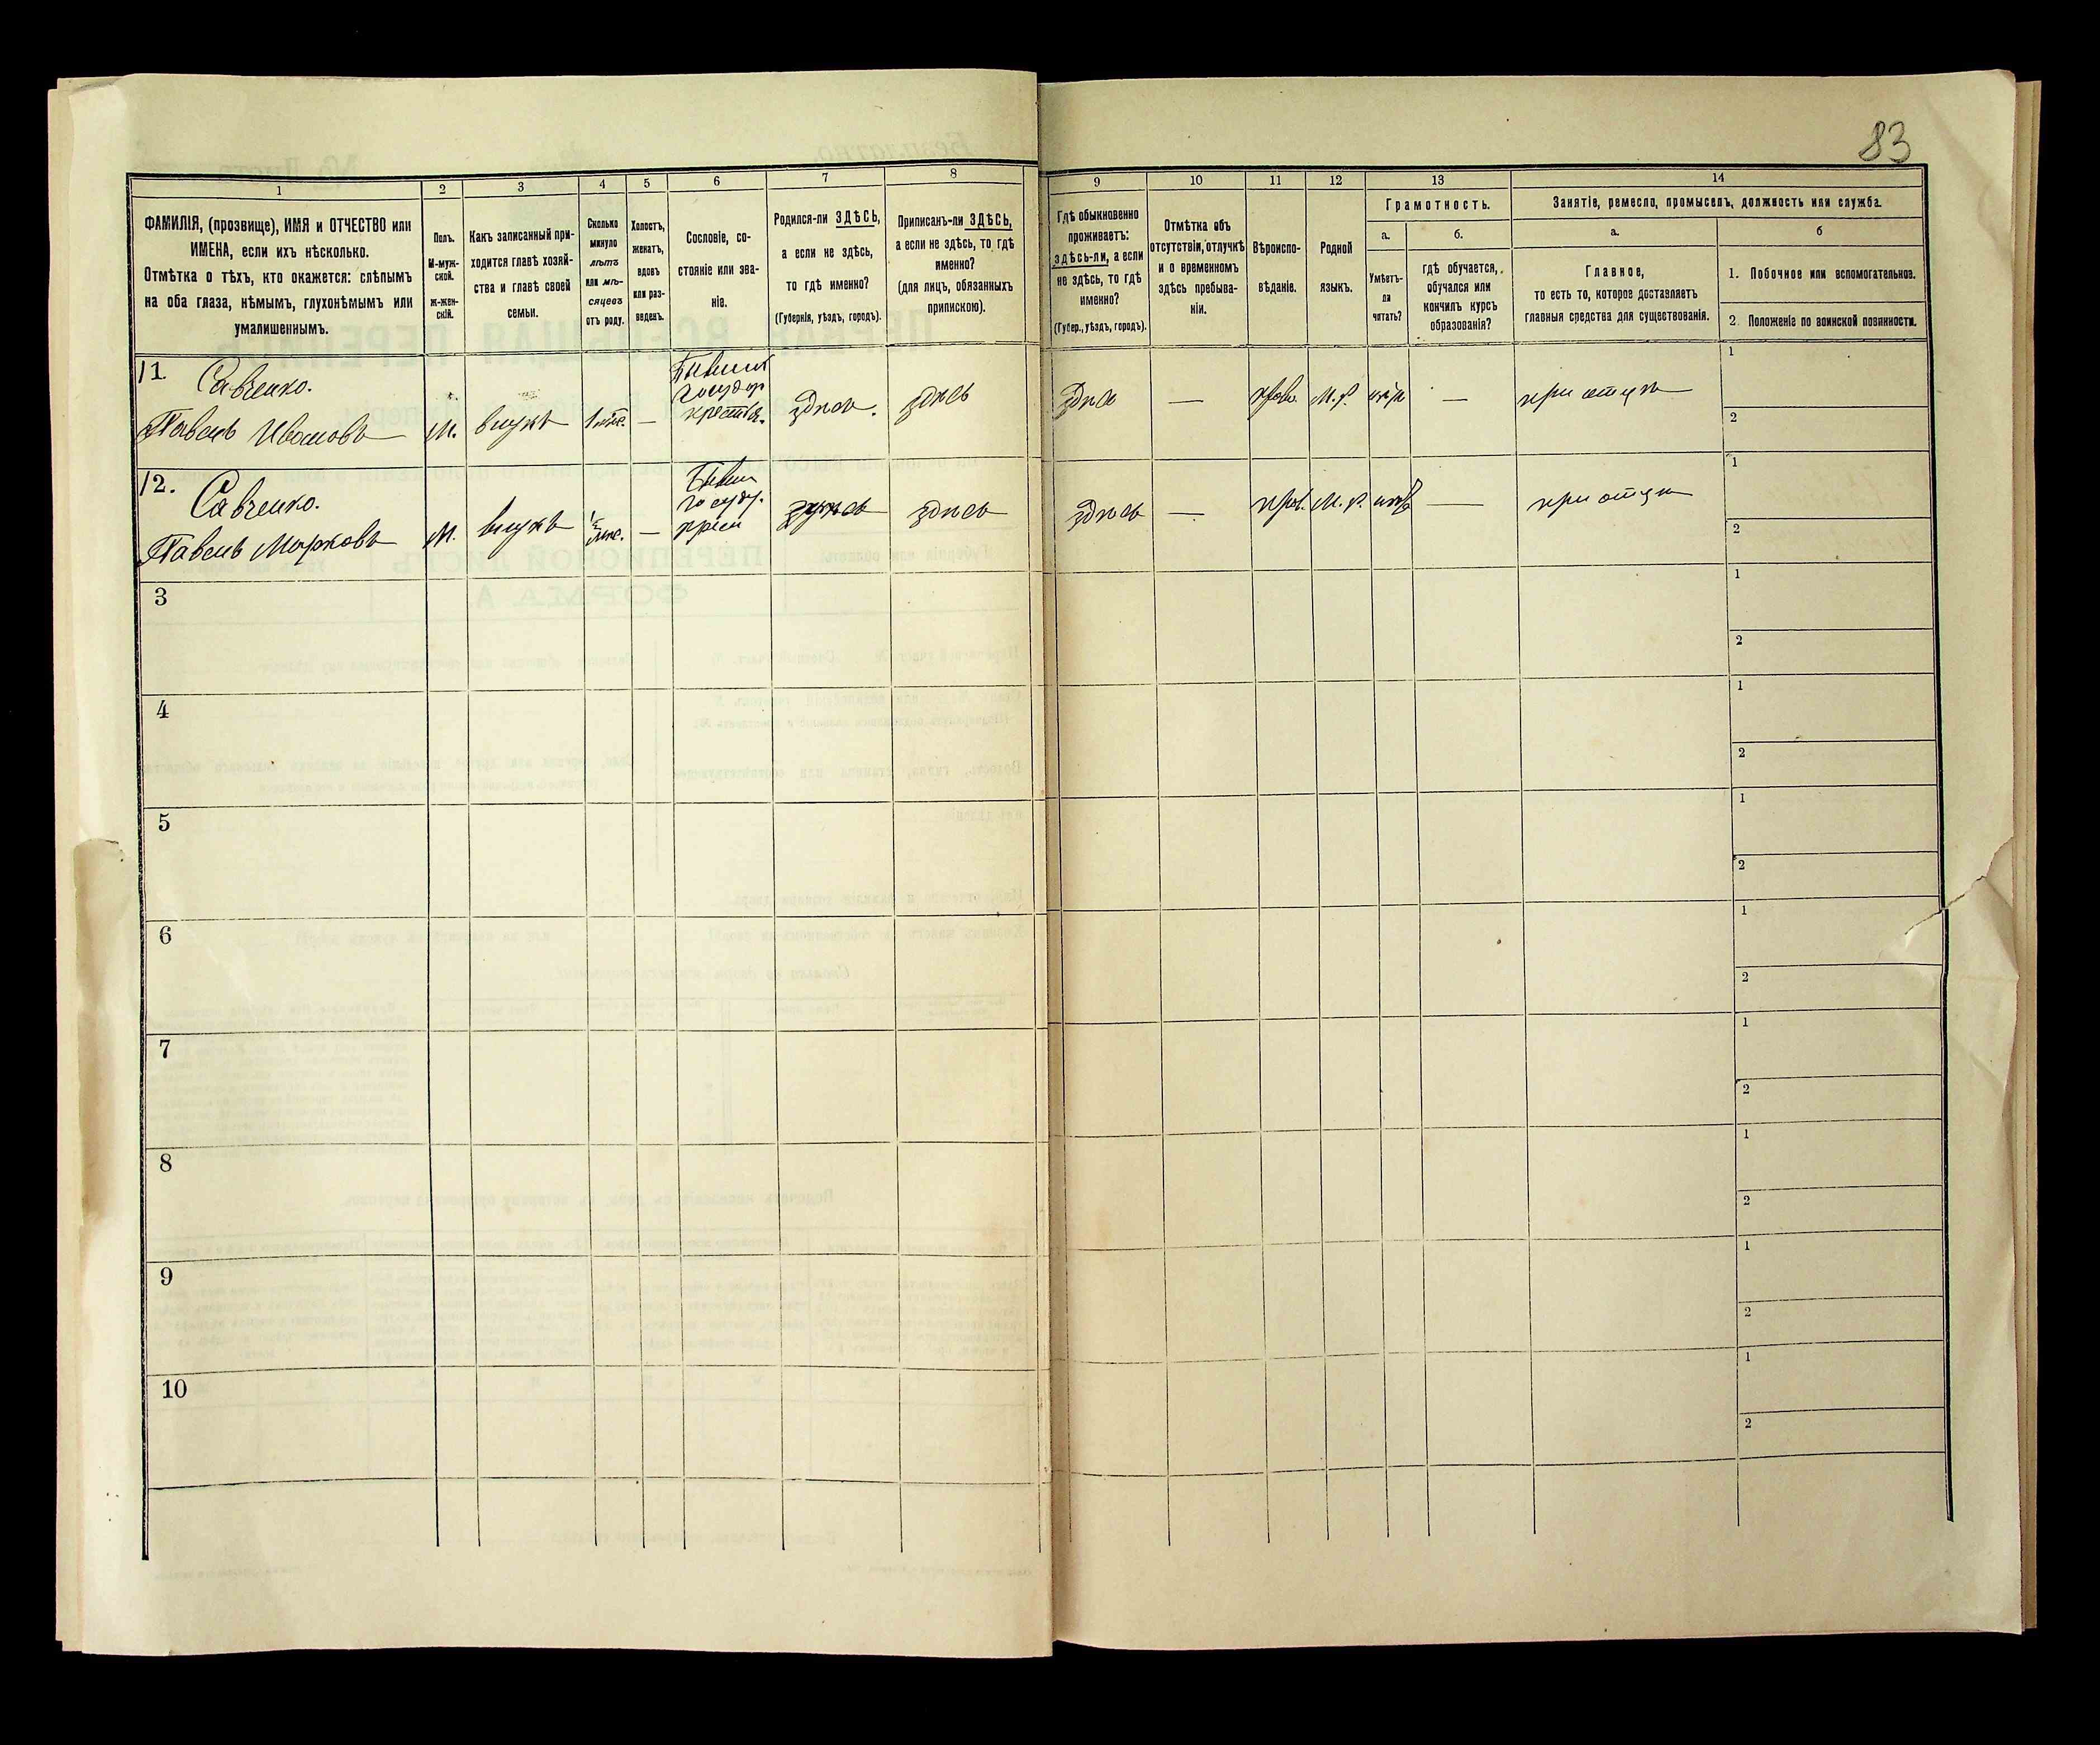 83
1
2
3
4
5
6
7
8
9
10
11
12
13
14
ФАМИЛІЯ, (прозвище), ИМЯ и ОТЧЕСТВО или
ИМЕНА, если ихъ нѣсколько.
Отмѣтка о тѣхъ, кто окажется: слѣпымъ
на оба глаза, нѣмымъ, глухонѣмымъ или
умалишеннымъ.
Полъ.
М-муж-
ской.
Ж-жен-
скій.
Какъ записанный при-
ходится главѣ хозяй-
ства и главѣ своей
семьи.
Сколько
минуло
лѣтъ
или мѣ-
сяцевъ
отъ роду.
Холостъ,
женатъ,
вдовъ
или раз-
веденъ.
Сословіе, со-
стояніе или зва-
ніе.
Родился-ли ЗДѢСЬ,
а если не здѣсь,
то гдѣ именно?
(Губернія, уѣздъ, городъ).
Приписанъ-ли ЗДѢСЬ,
а если не здѣсь, то гдѣ
именно?
(для лицъ, обязанныхъ
припискою).
Гдѣ обыкновенно
проживаетъ:
здѣсь-ли, а если
не здѣсь, то гдѣ
именно?
(Губер., уѣздъ, городъ).
Отмѣтка объ
отсутствіи, отлучкѣ
и о временномъ
здѣсь пребыва-
ніи.
Вѣроиспо-
вѣданіе.
Родной
языкъ.
Грамотность.
а.
Умѣетъ-
ли
читать?
б.
гдѣ обучается,
обучался или
кончилъ курсъ
образованія?
Занятіе, ремесло, промыселъ, должность или служба.
а.
Главное,
то есть то, которое доставляетъ
главныя средства для существованія.
б
1. Побочное или вспомогательное.
2. Положеніе по воинской повинности.
11
Савченко.
Павелъ Ивановъ
М.
внукъ
—
Бывшій
государ
крестья.
здѣсь.
здѣсь
здѣсь
—
М. р.
—
при отцѣ
1
2
12.
Савченко.
Павелъ Марковъ
М.
внукъ
—
Бывш
госуд.
крест
здѣсь
здѣсь
здѣсь
—
прав.
М. р.
—
при отцѣ
1
2
3
1
2
4
1
2
5
1
2
6
1
2
7
1
2
8
1
2
9
1
2
10
1
2